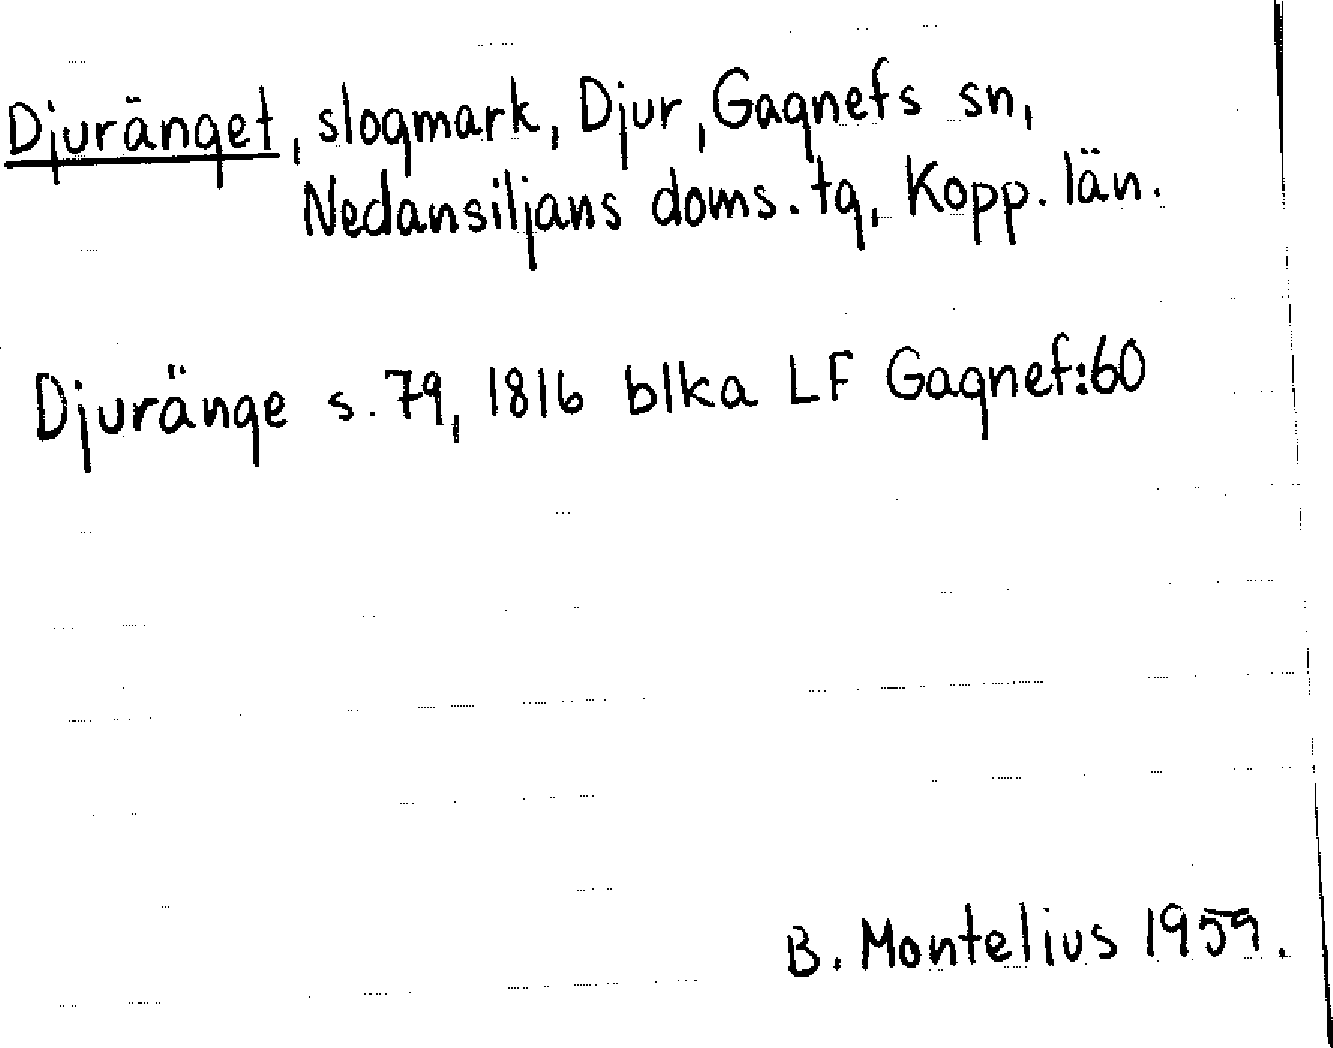 Djuränget, slogmark, Djur, Gagnefs sn,
Nedansiljans doms. tg, Kopp. län.
Djuränge s. 79, 1816 blka LF Gagnef:60
B. Montelius 1959.